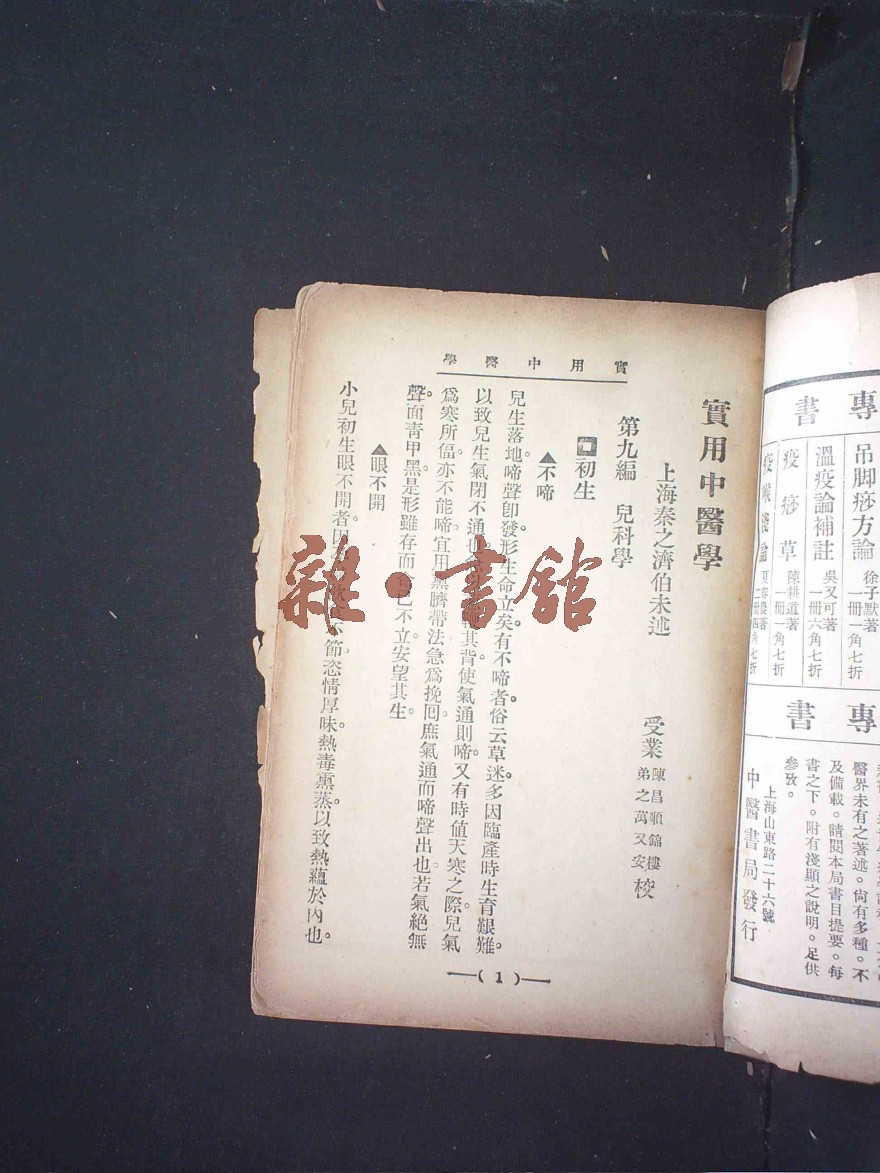 實用中醫學
實用中醫學
上海秦之濟伯未述
受業
陳昌順錦樓
弟之萬又安
校
第九編　兒科學
初生
▲不啼
兒生落地。啼聲卽發。形生命立矣。有不啼者。俗云草迷。多因臨產時生育艱難。
以致兒生氣閉不通也。其背。使氣通則啼。又有時値天寒之際。兒氣
爲寒所偪。亦不能啼。宜用臍帶法。急爲挽囘。庶氣通而啼聲出也。若氣絕無
聲。面靑甲黑。是形雖存而已不立。安望其生。
▲眼不開
小兒初生眼不開者。因節。恣情厚味。熱毒熏蒸。以致熱蘊於內也。
—( 1 )—
雜·書館
專書
吊脚痧方論
徐子默著
一冊一角七折
溫疫論補註
吳又可著
一冊六角七折
疫痧草
陳耕道著
一冊一角七折
疫喉淺論
夏春農著
二冊四角七折
專書
醫界未有之著述。尙有多種。不
及備載。請閱本局書目提要。每
書之下。附有淺顯之說明。足供
參攷。
上海山東路二十六號
中醫書局發行